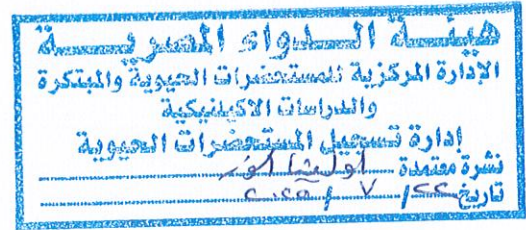 هيئة الدواء المصرية
الإدارة المركزية للمستحضرات الحيوية والمبتكرة
والدراسات الاكلينيكية
إدارة تسجيل المستحضرات الحيوية
نشرة معتمدة
تاريخ ٢٢ / ٧ / ٢٠٢٥